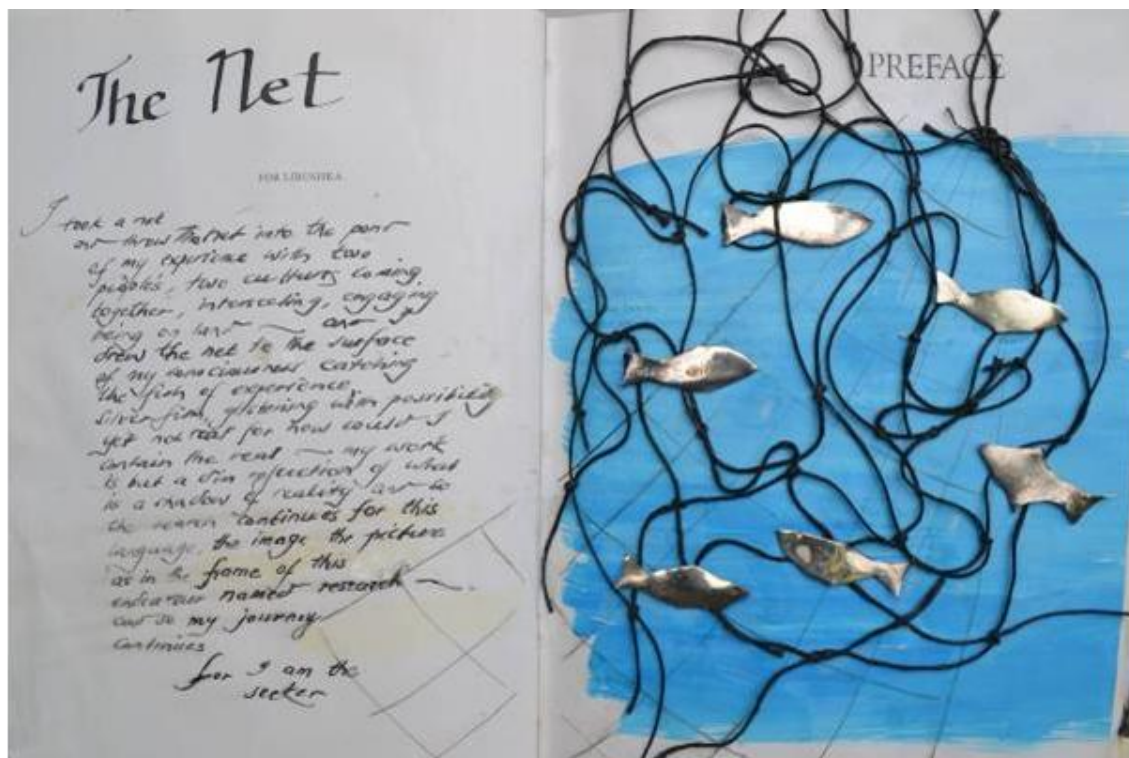 The Net
FOR LIBUSHKA
I took a net
and threw that net into the pond
of my experience with two
peoples, two cultures coming
together, intersecting, engaging
being on land — and I
drew the net to the surface
of my consciousness catching
the fish of experience
silver fish, glistening with possibility
yet not real for how could I
contain the real — my work
is but a dim reflection of what
is a shadow of reality and so
the search continues for this
language, the image the picture
as in the frame of this
endeavour named research —
and so my journey
continues
for I am the
seeker
PREFACE